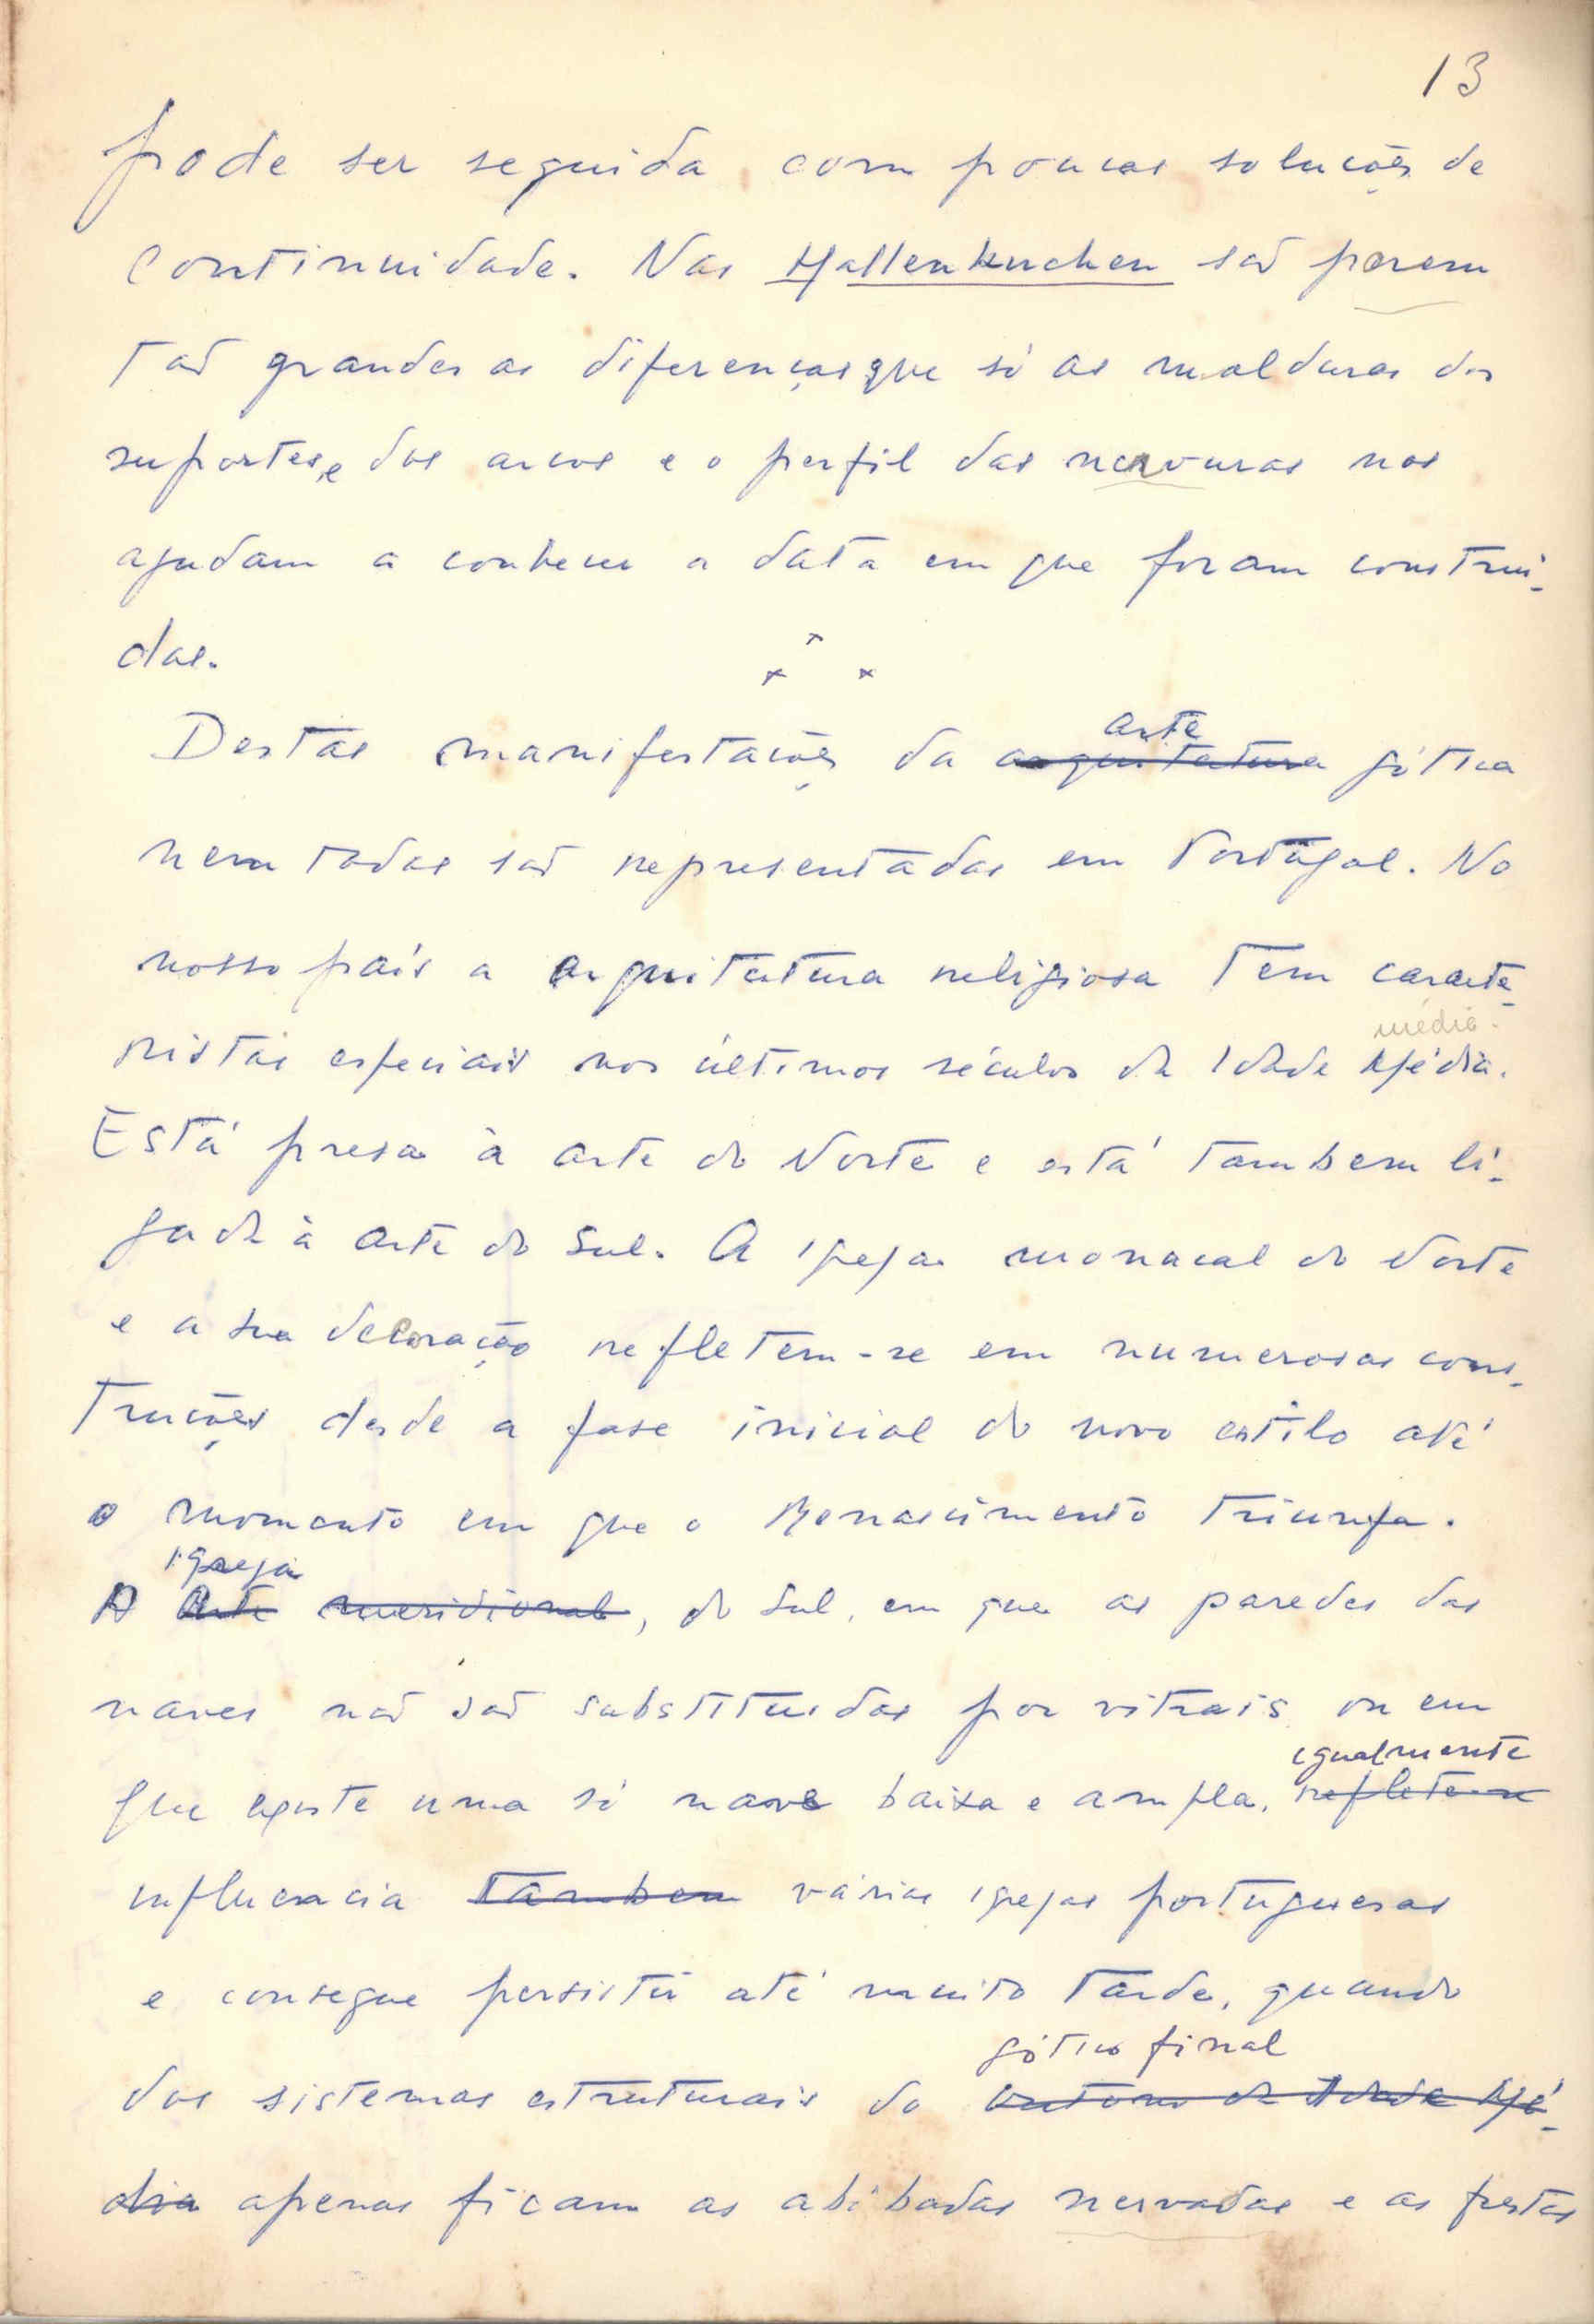 13
pode ser seguida com poucas soluções de
continuidade. Nas Hallenkirchen são porem
tão grandes as diferenças que só as molduras dos
suportes, e dos arcos e o perfil das nervuras nos
ajudam a conhecer a data em que foram construi-
das.
x x x
arte
Destas manifestações da arquitectura gótica
nem todas são representadas em Portugal. No
nosso país a arquitectura religiosa tem caracte-
média.
risticas especiais nos últimos séculos da Idade Média.
Está presa à arte do Norte e está tambem li-
gada à arte do Sul. A igreja monacal do Norte
e a sua decoração refletem-se em numerosas cons-
truções desde a fase inicial do novo estilo até
o momento em que o Renascimento triunfa.
igreja
A Arte meridional, do Sul, em que as paredes das
naves não são substituidas por vitrais ou em
igualmente
que existe uma só nave baixa e ampla, reflete-se
influencia tambem várias igrejas portuguesas
e consegue persistir até muito tarde, quando
gótico final
dos sistemas estruturais do outono da Idade Mé-
dia apenas ficam as abóbadas nervadas e as frestas